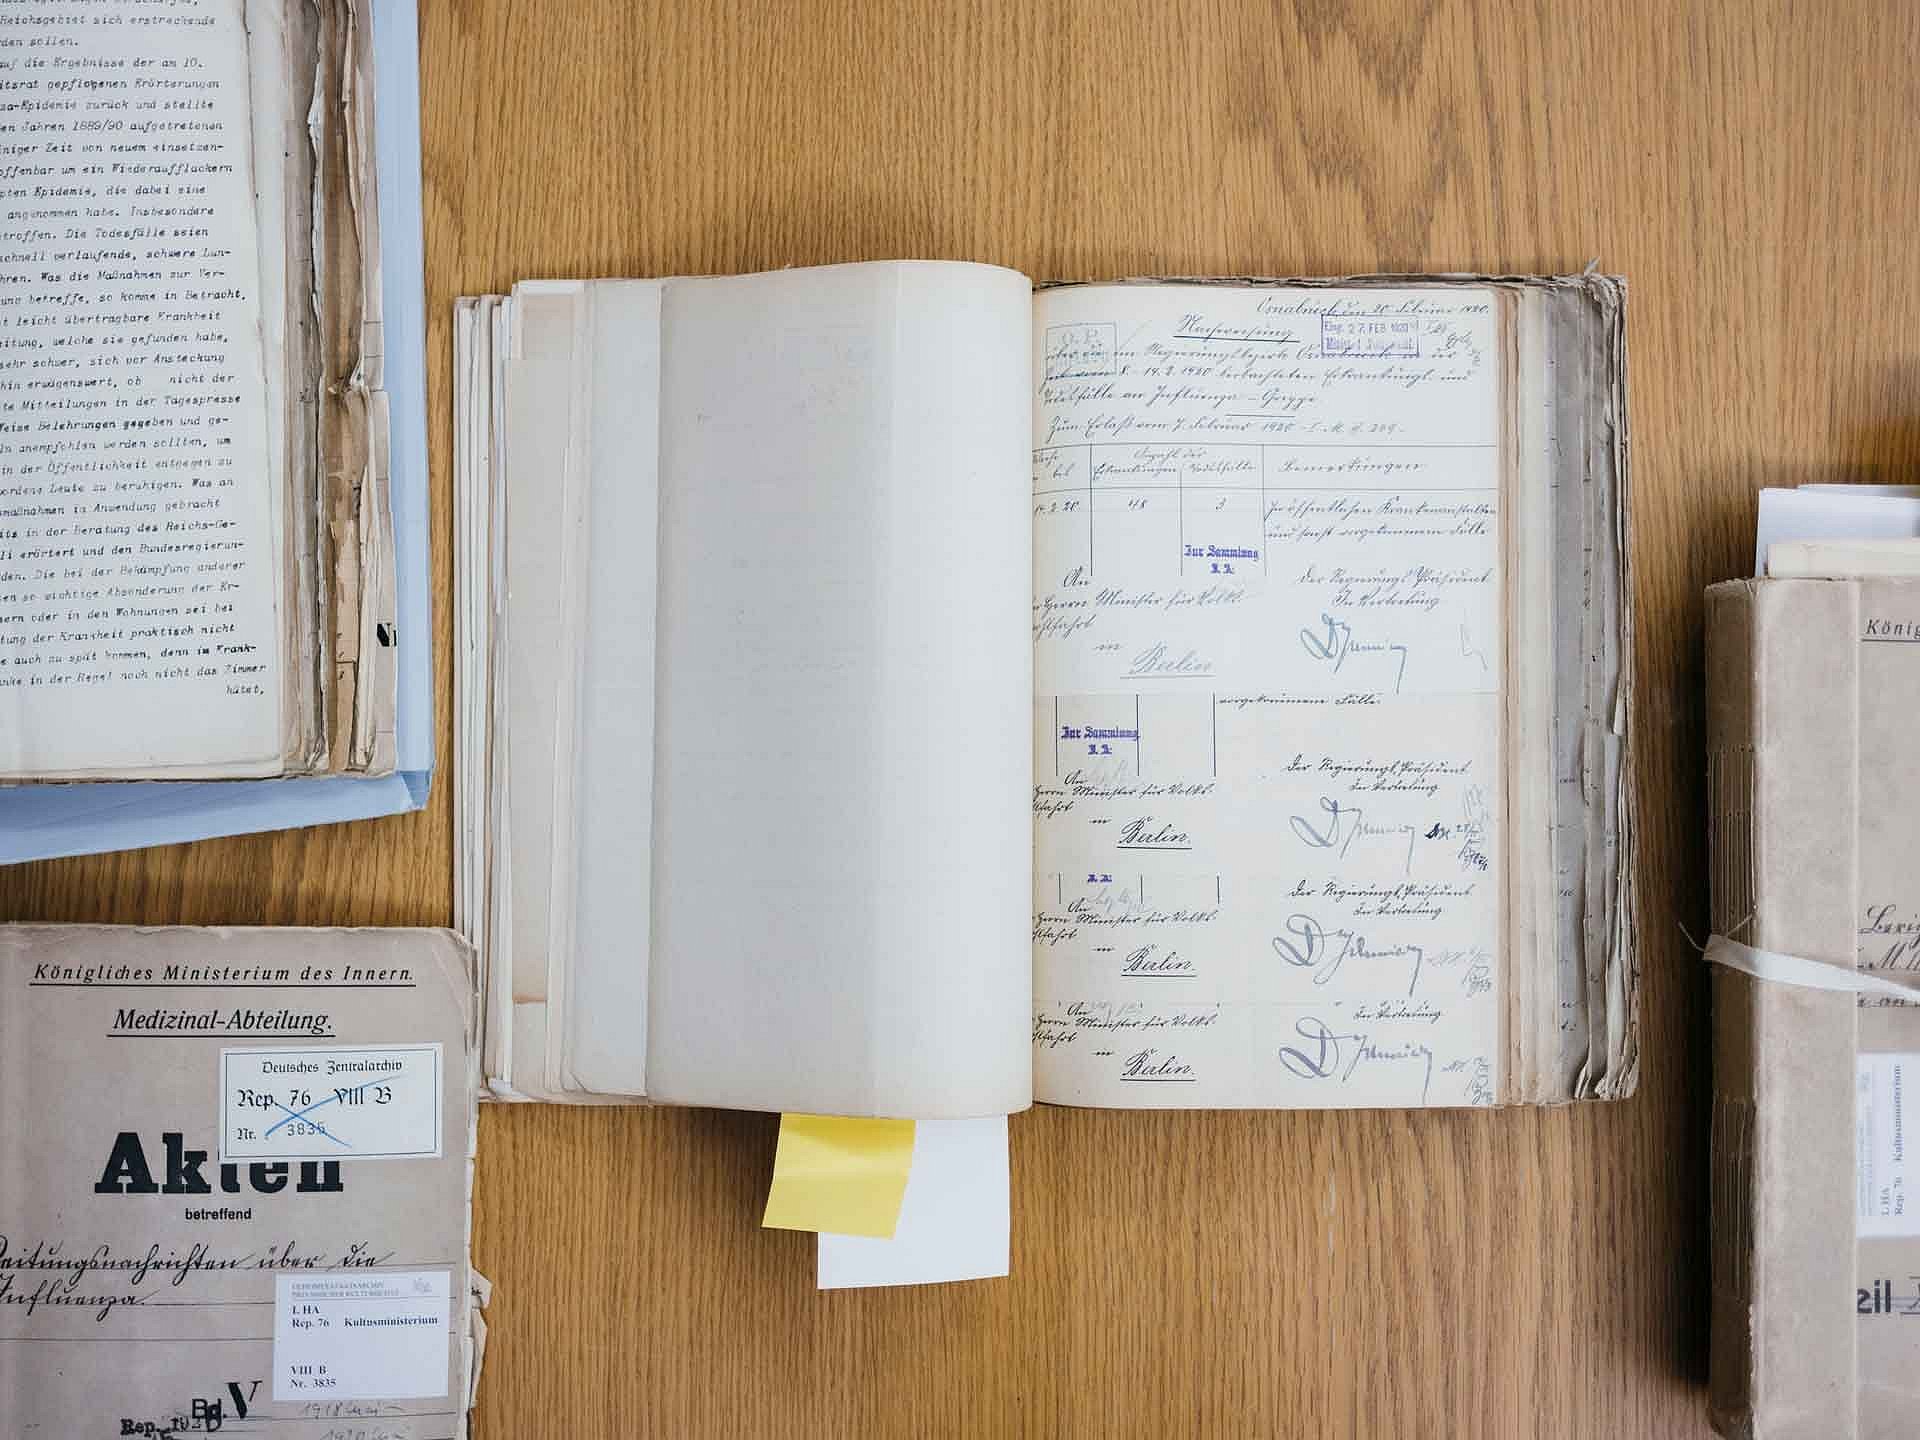 Reichsgebiet sich erstreckende
den sollen.
auf die Ergebnisse der am 10.
itsrat gepflogenen Erörterungen
za-Epidemie zurück und stellte
en Jahren 1889/90 aufgetretenen
iniger Zeit von neuem einsetzen-
offenbar um ein Wiederaufflackern
pten Epidemie, die dabei eine
angenommen habe. Insbesondere
troffen. Die Todesfälle seien
schnell verlaufende, schwere Lun-
hren. Was die Maßnahmen zur Ver-
ung betreffe, so komme in Betracht,
t leicht übertragbare Krankheit
eitung, welche sie gefunden habe,
sehr schwer, sich vor Ansteckung
hin erwägenswert, ob nicht der
te Mitteilungen in der Tagespresse
Weise Belehrungen gegeben und ge-
ln anempfohlen werden sollten, um
in der Öffentlichkeit entgegen zu
wordene Leute zu beruhigen. Was an
maßnahmen in Anwendung gebracht
its in der Beratung des Reichs-Ge-
li erörtert und den Bundesregierun-
den. Die bei der Bekämpfung anderer
en so wichtige Absonderung der Kr-
sern oder in den Wohnungen sei bei
tung der Krankheit praktisch nicht
e auch zu spät kommen, denn im Krank-
nke in der Regel noch nicht das Zimmer
hütet,
Königliches Ministerium des Innern.
Medizinal-Abteilung.
Deutsches Zentralarchiv
Rep. 76 VIII B
Nr. 3835
Akten
betreffend
Zeitungsnachrichten über die
Influenza.
GEHEIMES STAATSARCHIV
PREUSSISCHER KULTURBESITZ
I. HA
Rep. 76 Kultusministerium
VIII B
Nr. 3835
Bd. V
Rep.
1918
1920
Osnabrück, den 20. Februar 1920.
Nachweisung
Eing. 27. FEB. 1920
über die im Regierungsbezirk Osnabrück in der
Zeit vom 8. - 14. 2. 1920 beobachteten Erkrankungs- und
Todesfälle an Influenza - Grippe.
Zum Erlaß vom 7. Februar 1920 - I. M. 209.
Woche
bis
Anzahl der
Erkrankungen
Todesfälle
Bemerkungen
14.2.20
48
3
In öffentlichen Krankenanstalten
und sonst vorgekommene Fälle
Zur Sammlung
An
Herrn Minister für Volks-
wohlfahrt
in
Berlin
Der Regierungs-Präsident
In Vertretung
vorgekommene Fälle.
Zur Sammlung
An
Herrn Minister für Volks-
lfahrt
in
Berlin.
Der Regierungs-Präsident
In Vertretung
An
Herrn Minister für Volks-
lfahrt
in
Berlin.
Der Regierungs-Präsident
In Vertretung
An
Herrn Minister für Volks-
lfahrt
in
Berlin.
In Vertretung
König
I. HA
Rep. 76 Kultusministerium
eil